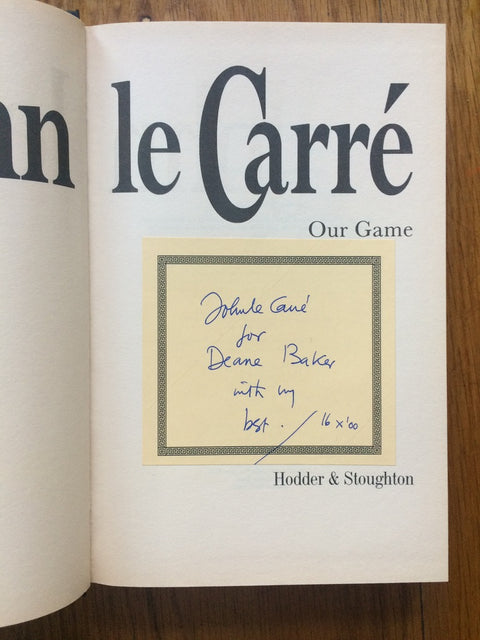 an le Carré
Our Game
John le Carré
for
Deane Baker
with my
best. / 16 x '00
Hodder & Stoughton